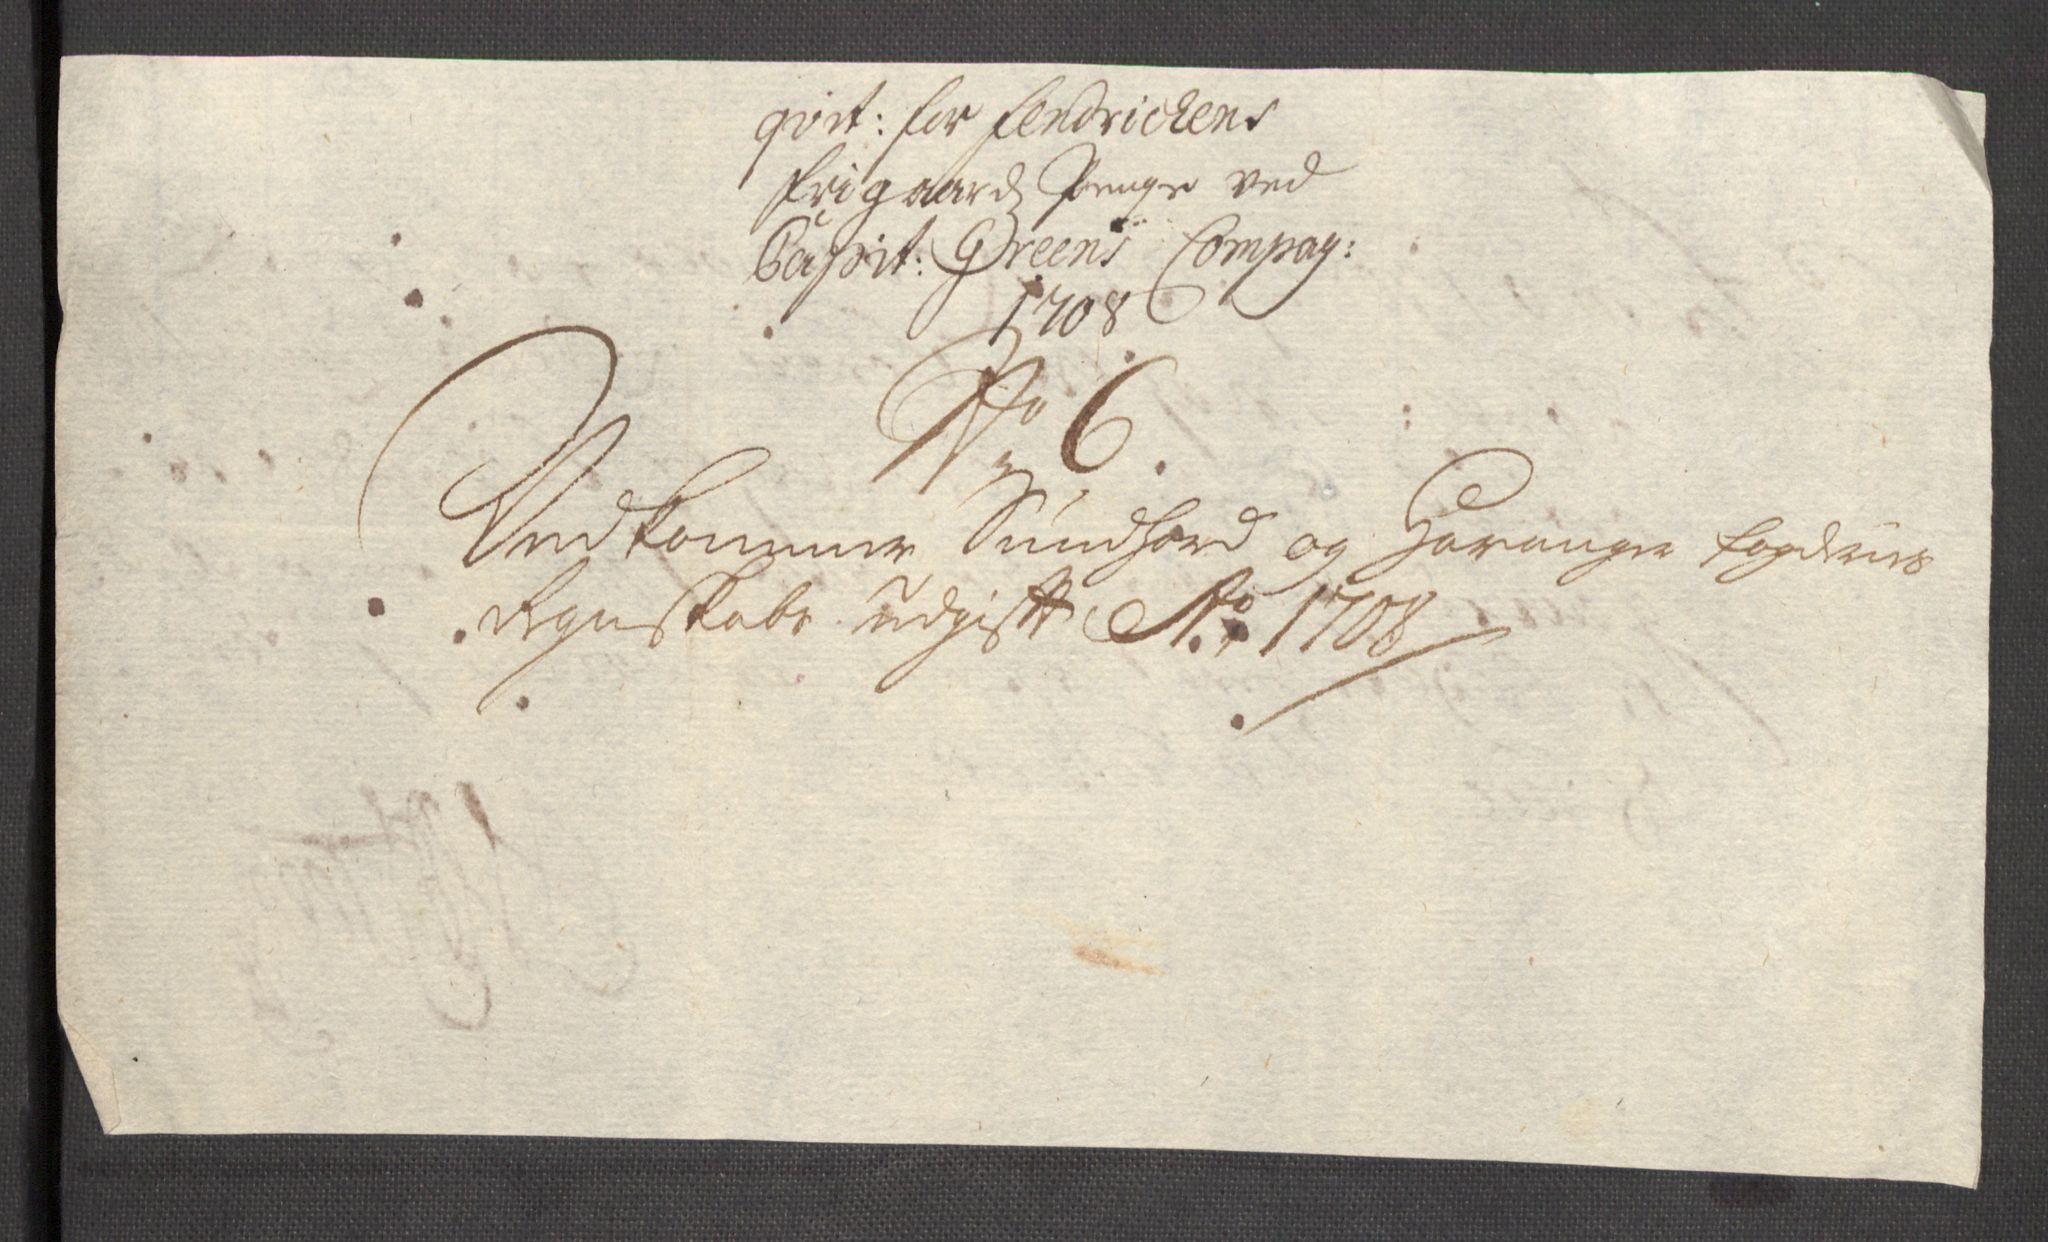 qvit: for fendrichens
frigaardz Penge ved
Capit: Greens Compag:
1708
No 6.
Vedkommer Sundhord og Haranger fogderies
Regnskabs udgifft Ao 1708